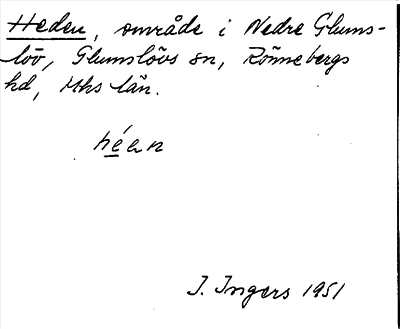 Heden, område i Nedre Glums-
löv, Glumslövs sn, Rönnebergs
hd, Mhs län.
héen
I. Ingers 1951